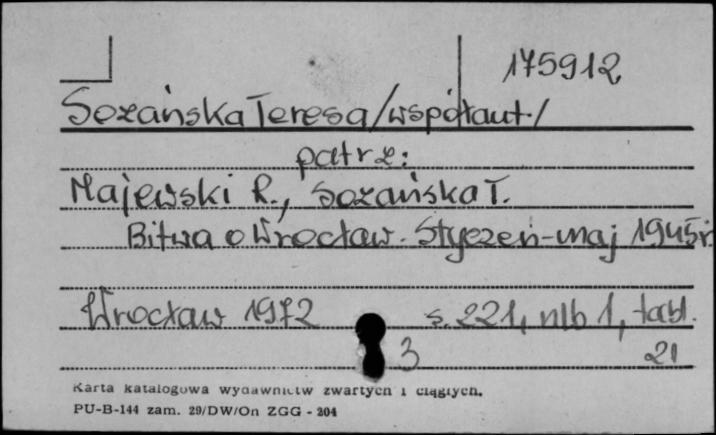 175912
Sozańska Teresa /współaut./
patrz:
Majewski R., Sozańska T.
Bitwa o Wrocław. Styczeń-maj 1945 r.
Wrocław 1972 s. 221, nlb 1, tabl.
3 21
Karta katalogowa wydawnictw zwartych i ciągłych.
PU-B-144 zam. 29/DW/On ZGG - 204